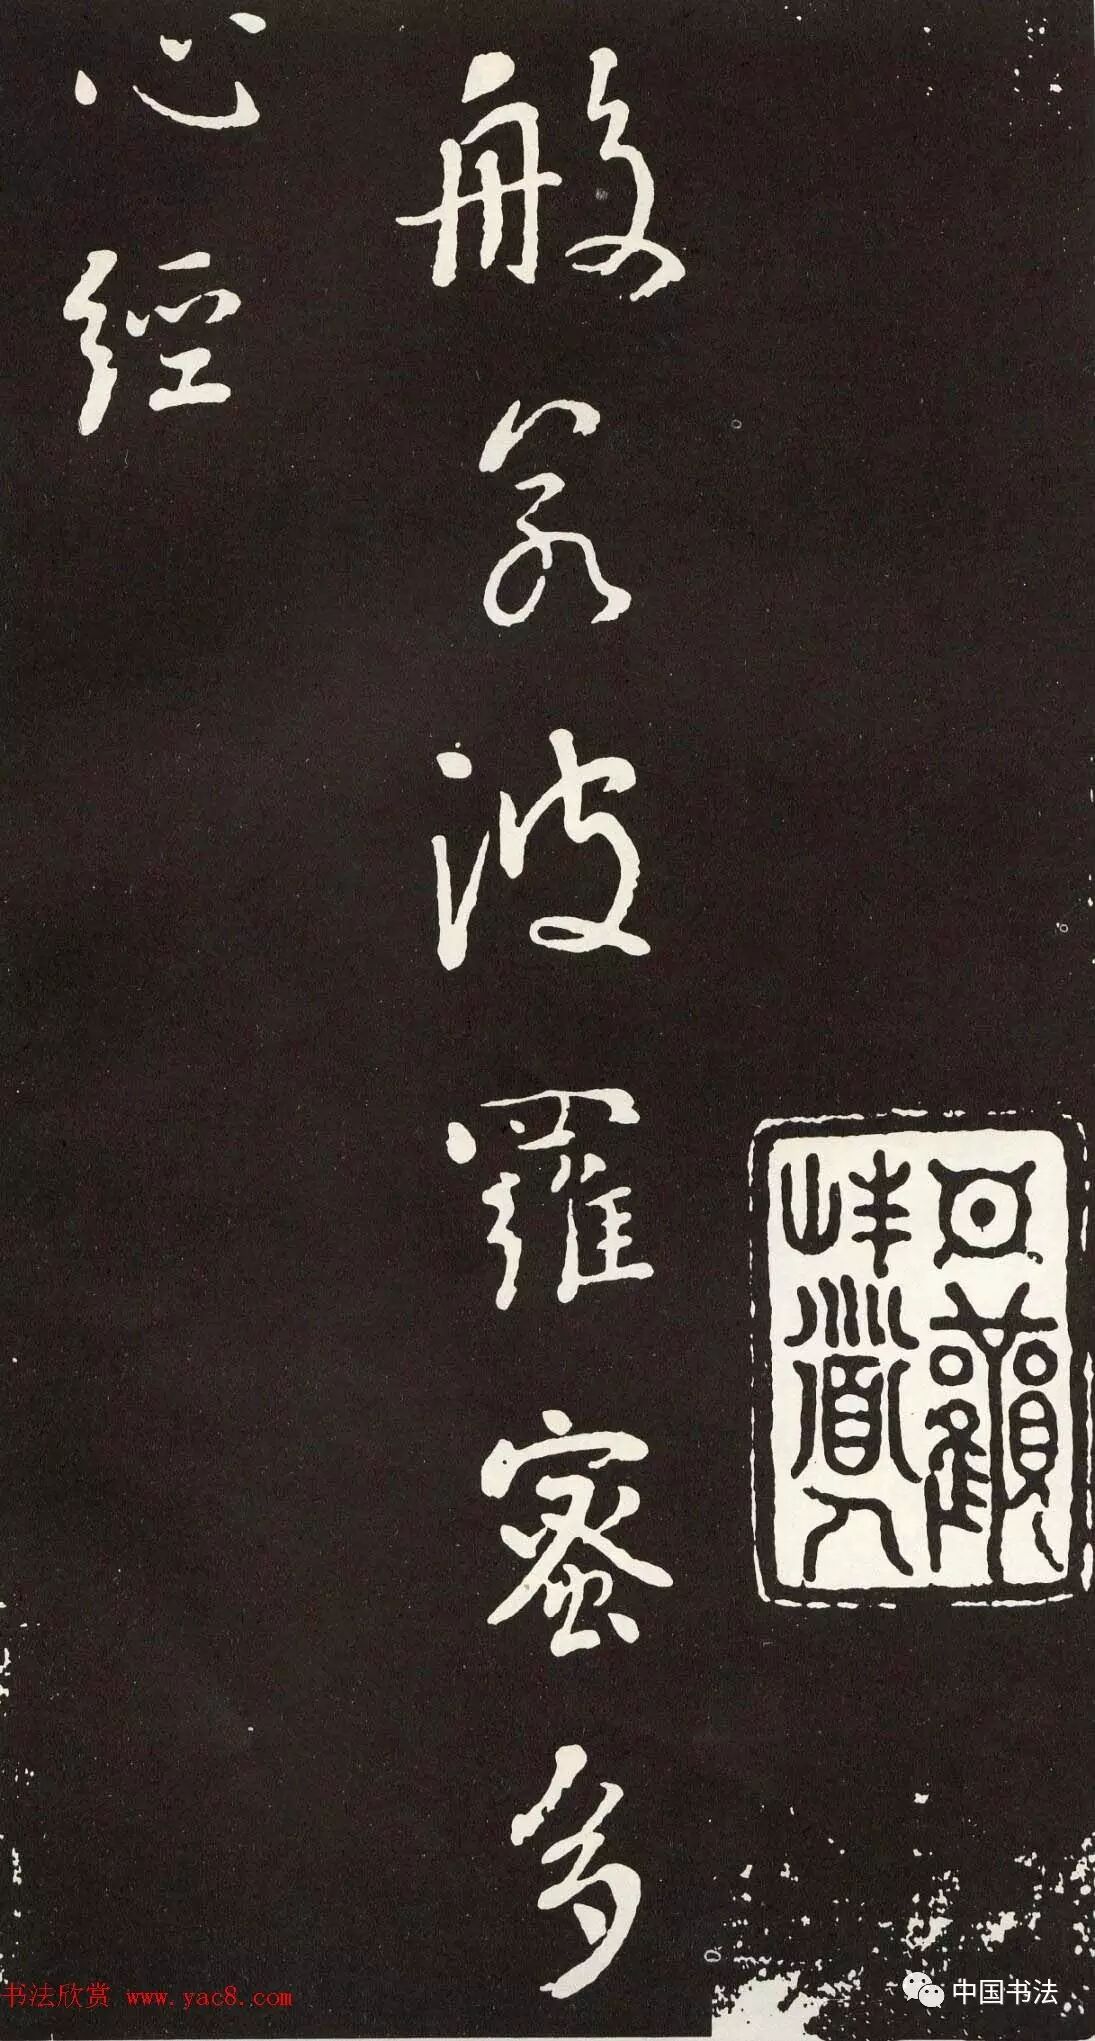 般若波羅蜜多
心經
书法欣赏 www.yac8.com
中国书法